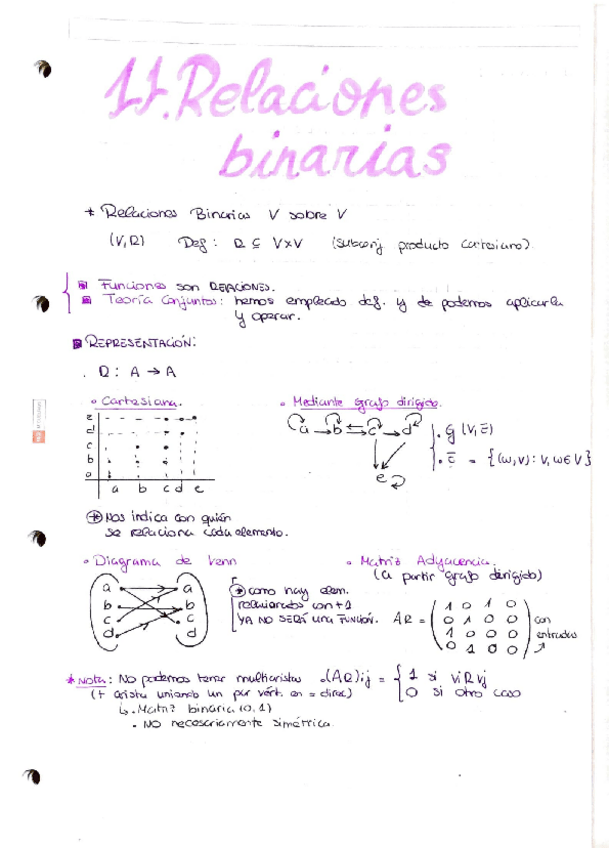 11. Relaciones
binarias
* Relaciones Binarias V sobre V
(V,R) Def: R ⊆ V×V (subconj. producto cartesiano).
Funciones son RELACIONES.
Teoría Conjuntos: hemos empleado def. y de podemos aplicarla
y operar.
REPRESENTACIÓN:
. R: A → A
Cartesiana.
e
d
c
b
a
a b c d e
Mediante grafo dirigido.
a b c d
e
. G (V, E)
. E = {(w,v): v,w ∈ V}
* Nos indica con quién
se relaciona cada elemento.
Diagrama de Venn
a a
b b
c c
d d
* como hay elem.
relacionados con +1
YA NO SERÁ UNA FUNCIÓN.
Matriz Adyacencia.
(a partir grafo dirigido)
AR = ( 1 0 1 0
0 1 0 0
1 0 0 0
0 1 0 0 )
con
entradas
* NOTA: No podemos tener multiaristas
(+ arista uniendo un par vért. en = direc)
↳ . Matriz binaria (0,1)
. No necesariamente simétrica.
.(AR)ij = { 1 si viRvj
0 si otro caso